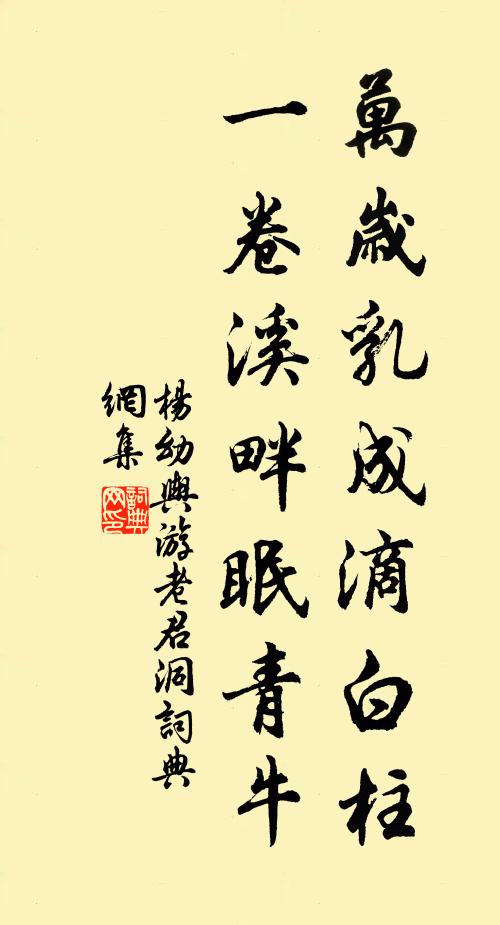 萬歲乳成滴白柱
一卷溪畔眠青牛
楊幼輿游老君洞詞典
網集
詞典網印